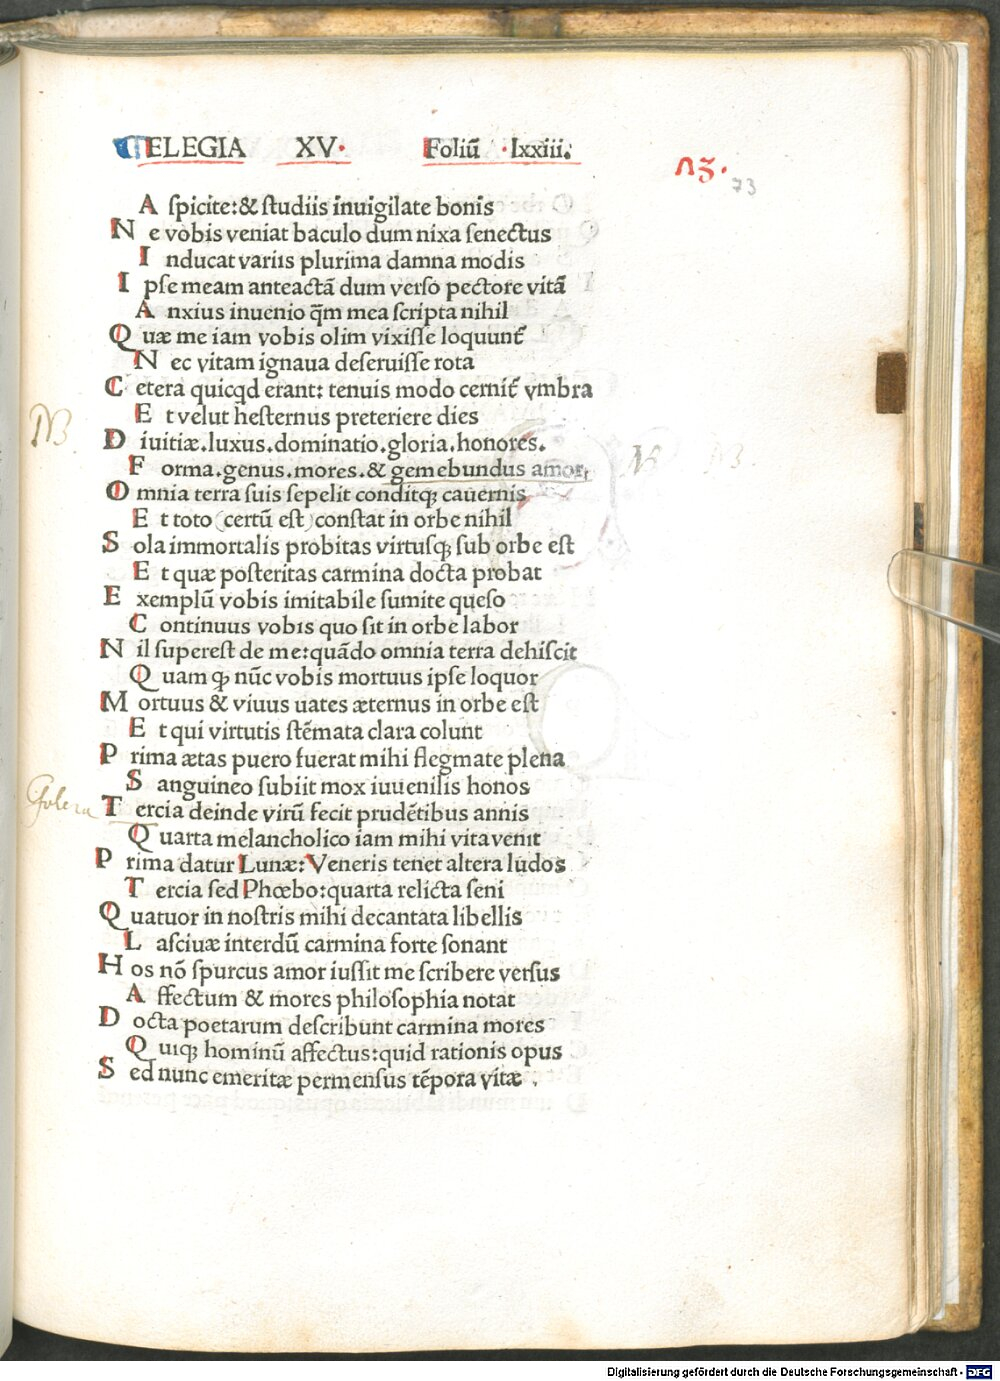 ELEGIA XV. Foliū .lxxiii.
73.
73
A spicite:& studiis inuigilate bonis
N e vobis veniat baculo dum nixa senectus
I nducat variis plurima damna modis
I pse meam anteactā dum verso pectore vitā
A nxius inuenio q̄m mea scripta nihil
Q uæ me iam vobis olim vixisse loquunt᷑
N ec vitam ignaua deseruisse rota
C etera quicqd erant: tenuis modo cernit᷑ vmbra
E t velut hesternus preteriere dies
NB
D iuitiæ.luxus.dominatio.gloria.honores.
F orma.genus.mores.& gemebundus amor,
NB
NB.
O mnia terra suis sepelit conditqꝫ cauernis
E t toto (certū est) constat in orbe nihil
S ola immortalis probitas virtusqꝫ sub orbe est
E t quæ posteritas carmina docta probat
E xemplū vobis imitabile sumite queso
C ontinuus vobis quo sit in orbe labor
N il superest de me:quādo omnia terra dehiscit
Q uam qꝫ nūc vobis mortuus ipse loquor
M ortuus & viuus uates æternus in orbe est
E t qui virtutis stēmata clara colunt
P rima ætas puero fuerat mihi flegmate plena
S anguineo subiit mox iuuenilis honos
T ercia deinde virū fecit prudētibus annis
Q uarta melancholico iam mihi vita venit
P rima datur Lunæ: Veneris tenet altera ludos
T ercia sed Phœbo:quarta relicta seni
Q uatuor in nostris mihi decantata libellis
L asciuæ interdū carmina forte sonant
H os nō spurcus amor iussit me scribere versus
A ffectum & mores philosophia notat
D octa poetarum describunt carmina mores
Q uiqꝫ hominū affectus:quid rationis opus
S ed nunc emeritæ permensus tēpora vitæ .
Digitalisierung gefördert durch die Deutsche Forschungsgemeinschaft - DFG